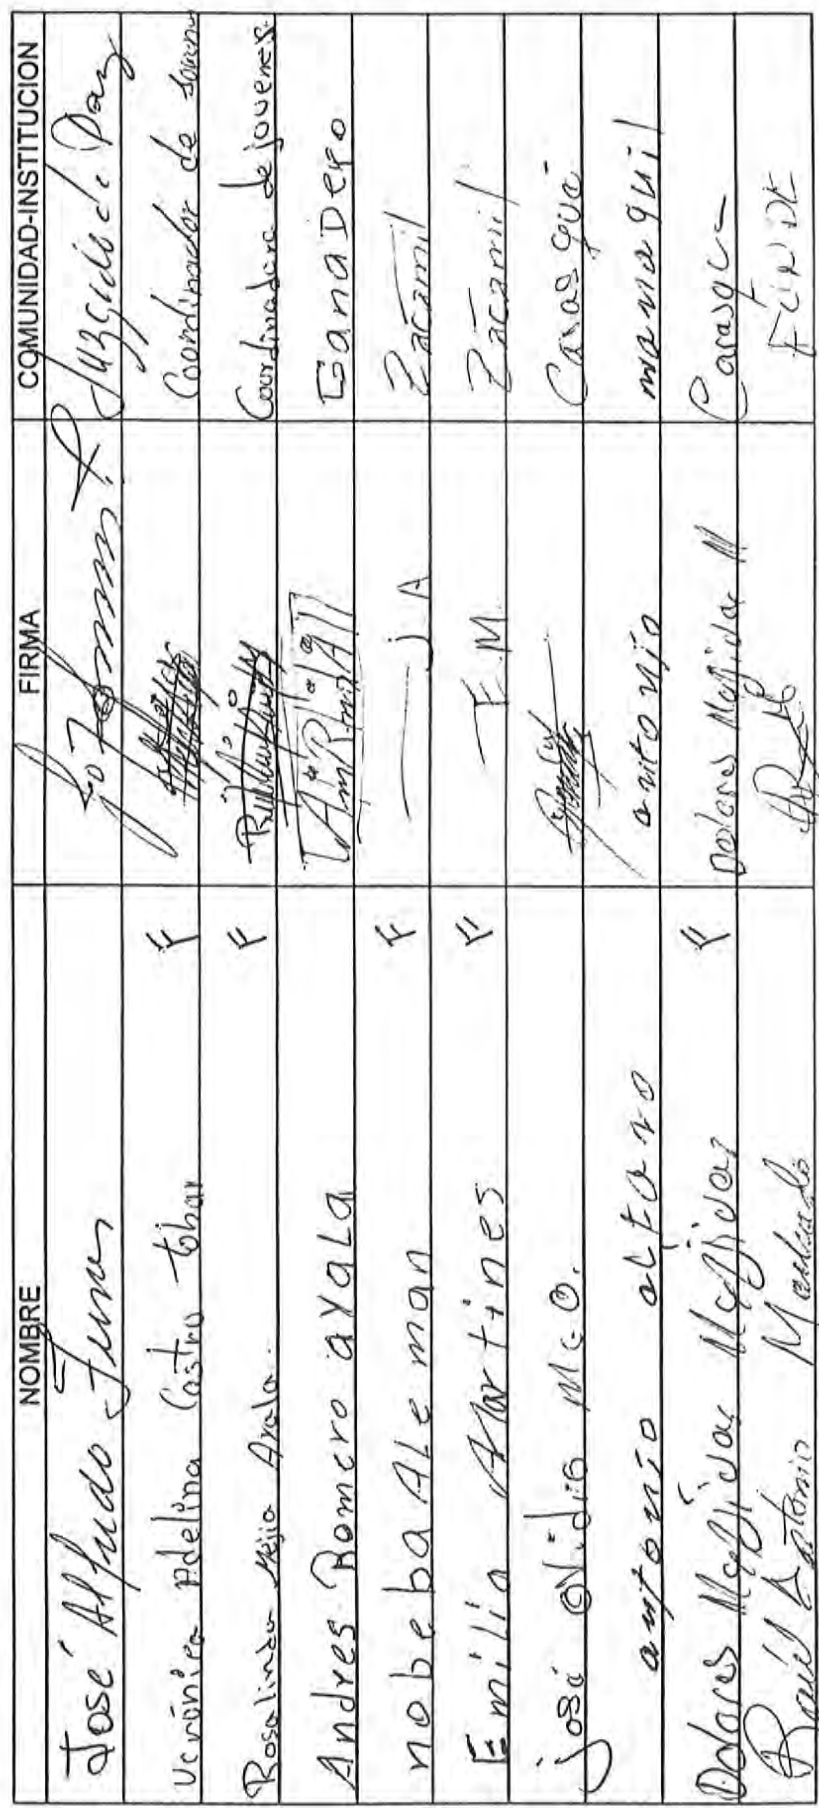 NOMBRE FIRMA COMUNIDAD-INSTITUCION
José Alfredo Juzgado de Paz
Verónica Adelina Castro tobar F Coordinador de
Rosalinda Mejia Ayala. F Coordinadora de jovenes.
Andres Romero ayaLa Ganadero
nobeba ALeman F J. A Zacamil
Emilia Martines F E. M. Zacamil
josé ovidio antonio
antonio alfaro antonio managuil
Dolores Mejidas Mejidas F Dolores Mejidas M Carasque
Raúl Antonio Mercado FUNDE